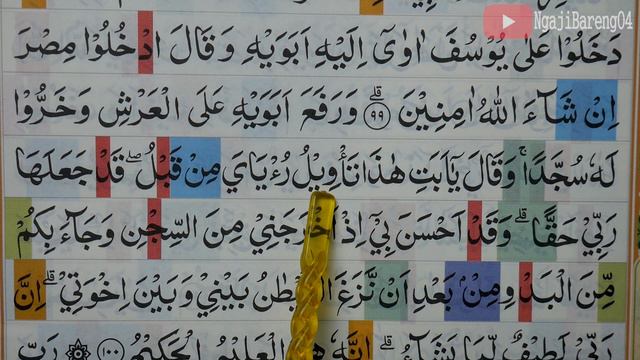 NgajiBareng04
دَخَلُوْا عَلٰى يُوْسُفَ اٰوٰٓى اِلَيْهِ اَبَوَيْهِ وَقَالَ ادْخُلُوْا مِصْرَ
اِنْ شَاۤءَ اللّٰهُ اٰمِنِيْنَ ۗ ٩٩ وَرَفَعَ اَبَوَيْهِ عَلَى الْعَرْشِ وَخَرُّوْا
لَهٗ سُجَّدًاۚ وَقَالَ يٰٓاَبَتِ هٰذَا تَأْوِيْلُ رُءْيَايَ مِنْ قَبْلُ ۖ قَدْ جَعَلَهَا
رَبِّيْ حَقًّا ۗ وَقَدْ اَحْسَنَ بِيْٓ اِذْ اَخْرَجَنِيْ مِنَ السِّجْنِ وَجَاۤءَ بِكُمْ
مِّنَ الْبَدْوِ مِنْۢ بَعْدِ اَنْ نَّزَغَ بَيْنِيْ وَبَيْنَ اِخْوَتِيْ ۗ اِنَّ
رَبِّيْ لَطِيْفٌ لِّمَا يَشَاۤءُ ۗ اِنَّهٗ الْعَلِيْمُ الْحَكِيْمُ ١٠٠ رَبِّ